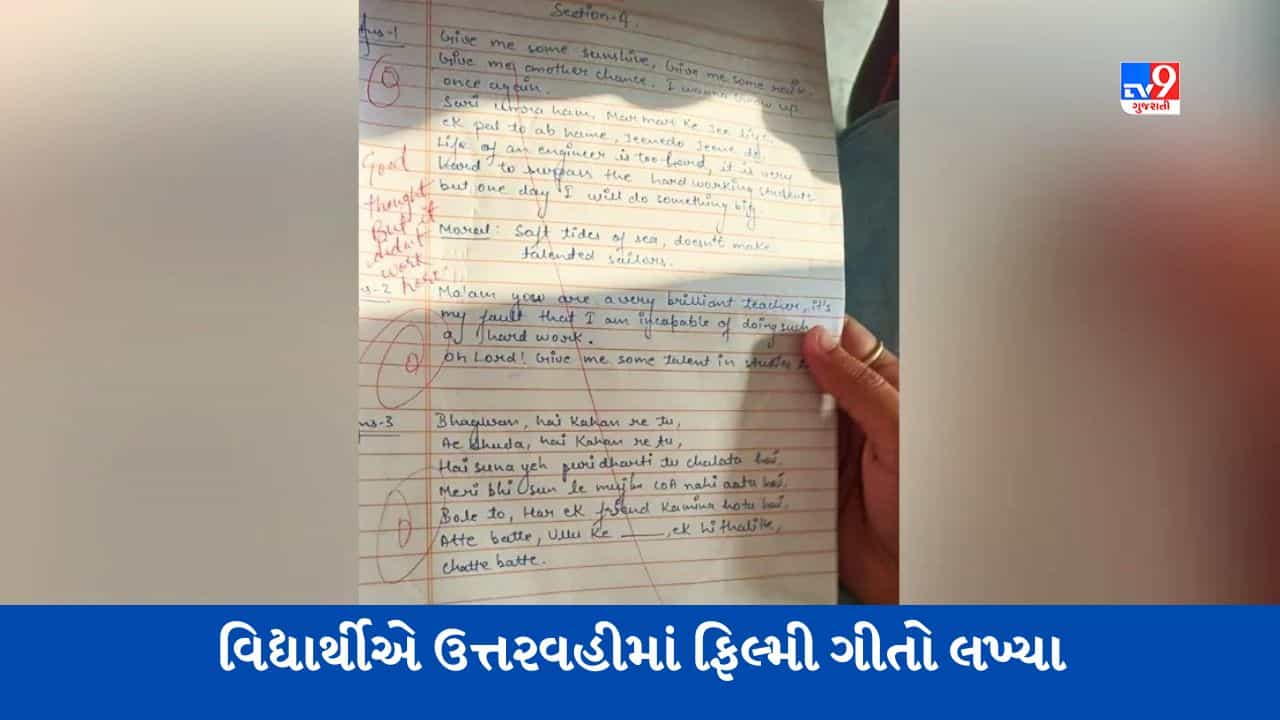 Section-4.
Ans-1
Give me some sunshine, Give me some rain.
Give me another chance. I wanna grow up
once again.
Sari umra ham, Mar mar ke jee liye.
ek pal to ab hame, jeenedo jeene do.
Life of an engineer is too hard, it is very
hard to surpass the hardworking students
but one day I will do something big.
Moral: Soft tides of sea, doesn't make
talented sailors.
0
Good
thought
But it
didn't
work
here
ns-2
Ma'am you are a very brilliant teacher, it's
my fault that I am incapable of doing such
a hard work.
Oh Lord! Give me some talent in studies
0
ns-3
Bhagwan, hai Kahan re tu,
Ae khuda, hai Kahan re tu,
Hai suna yeh puri dharti tu chalata hai,
Meri bhi sun le mujhe COA nahi aata hai,
Bole to, Har ek friend Kamina hota hai,
Atte batte, Ullu Ke ____, ek hi thali ke,
chatte batte.
0
TV9
ગુજરાતી
વિદ્યાર્થીએ ઉત્તરવહીમાં ફિલ્મી ગીતો લખ્યા